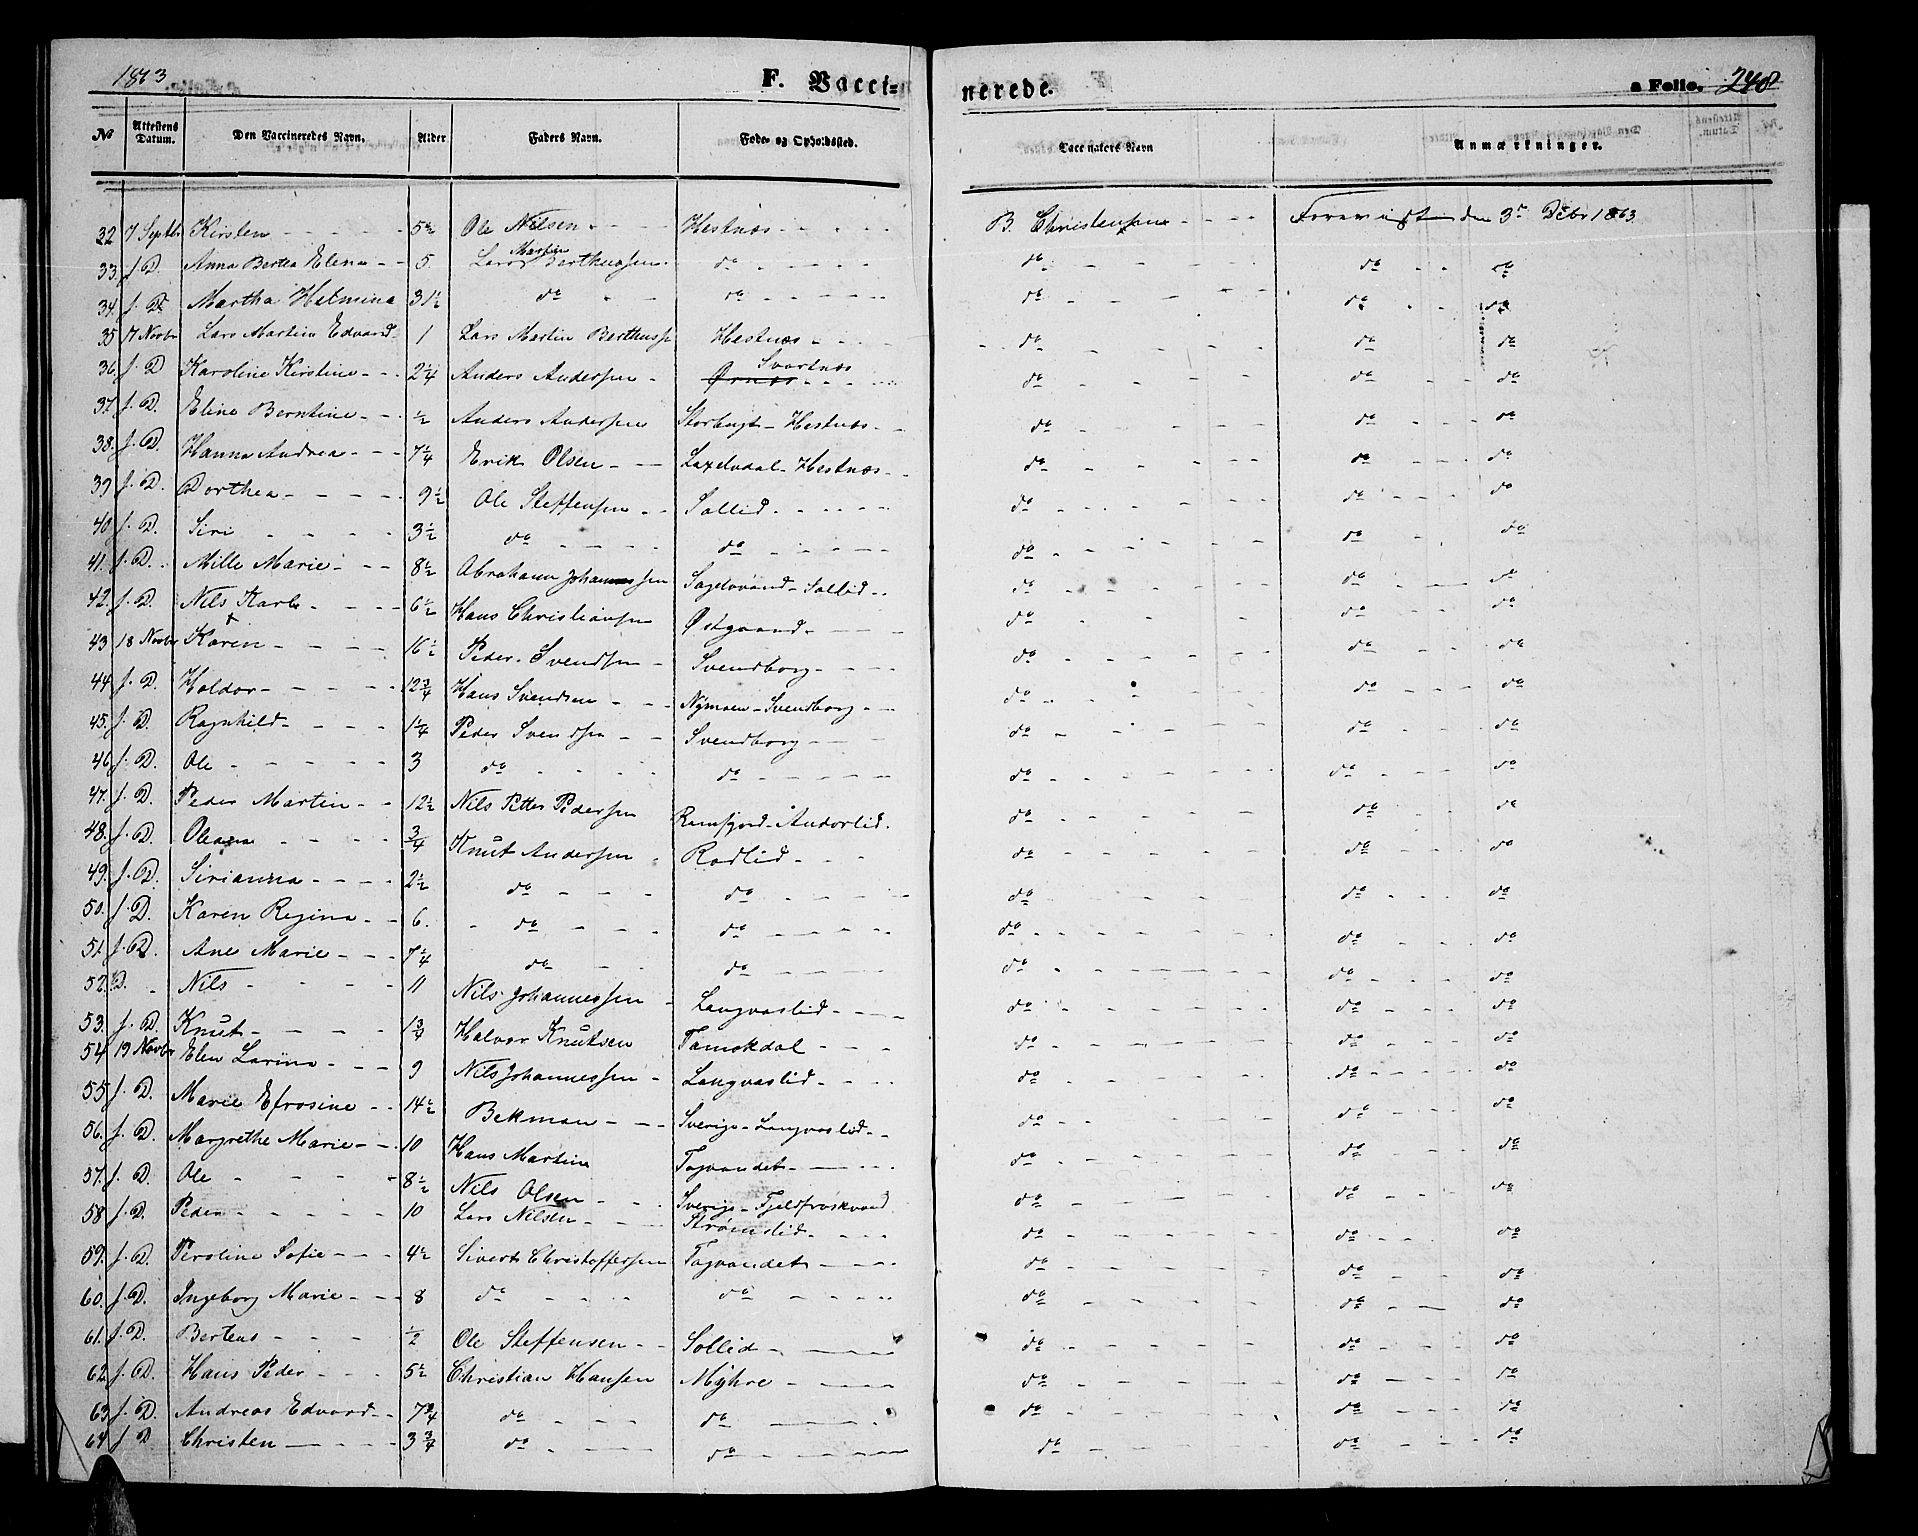 1863
F. Vacci-
nerede.
a Folio. 240
No Attestens Datum. Den Vaccineredes Navn. Alder Faders Navn. Føde- og Opholdssted. Vaccinators Navn Anmærkninger.
32 7 Septbr Kirsten - - - - 5 1/2 Ole Nilsen - - Hestnæs - - - B. Christensen - - - Foreviist den 3e Debr 1863.
33. f. D. Anna Berthea Elena - - 5. Lars Martin Berthussen. do - - - do - - - do - - do
34. f. D. Martha Helmina 3 1/2 do - - do - - - do - - - do - - do
35 17 Novbr Lars Martin Edvard - 1 Lars Martin Berthuss. Hestnæs - - - do - - - do - - do
36. f. D Karoline Kirstine - - 2 1/4 Anders Andersen - Ørnæs Svartnæs - - - do - - - do - - do
37. f. D. Eline Berntine - - 1/2 Anders Andersen Storbugt - Hestnæs - - do - - - do - - do
38. f. D. Hanna Andrea - - 7 1/4 Erik Olsen - - Laxelvdal - Hestnæs - - do - - - do - - do
39 f. D. Dorthea - - - 9 1/2 Ole Steffensen - - Sollid - - - do - - - do - - do
40. f. D. Siri - - - 3 1/2 do - - - do - - - do - - - do - - do
41. f. D. Mille Marie - - 8 1/2 Abraham Johannessen Sagelvvand - Sollid - - do - - - do - - do
42. f. D. Nils Karl - - - 6 1/2 Hans Christiansen Østgaard - - - do - - - do - - do
43 18 Novbr Karen - - - 16 1/2 Peder Svendsen - Svendborg - - - do - - - do - - do
44 f. D. Haldor - - - 12 3/4 Hans Svendsen - - Nymoen - Svendborg - - do - - - do - - do
45. f. D. Ragnhild - - - 1 1/4 Peder Svendsen - - Svendborg - - do - - - do - - do
46 f. D. Ole - - - 3 do - - - do - - - do - - - do - - do
47. f. D. Peder Martin - - 12 1/2 Nils Petter Pedersen Ramfjord - Andorlid. do - - - do - - do
48. f. D. Oleana - - - 3/4 Knut Andersen - Rodlid - - - do - - - do - - do
49. f. D. Sirianna - - - 2 1/2 do - - - do - - - do - - - do - - do
50. f. D. Karen Regina - - 6. do - - - do - - - do - - - do - - do
51. f. D. Ane Marie - - - 7 1/4 do - - do - - - do - - - do - - do
52. D. Nils - - - 11 Nils Johannessen - Langvaslid - - - do - - - do - - do
53. f. D. Knut - - - 1 3/4 Halvor Knutsen Tamokdal - - - do - - - do - - do
54 19 Novbr Elen Larine - - - 9 Nils Johannessen - Langvaslid - - - do - - - do - - do
55 f. D. Marie Efrosine - - 14 1/2 Bekman - - - Sverige - Langvaslid - - do - - - do - - do
56. f. D. Margrethe Marie - - 10 Hans Martin Tagvandet - - - do - - - do - - do
57. f. D. Ole - - - 8 1/2 Nils Olsen - - Sverige - Fjeldfroskvand do - - - do - - do
58 f. D. Peder - - - 10 Lars Nilsen - - - Strømlid - - - do - - - do - - do
59. f. D. Peroline Sofie - - 4 1/2 Sivert Christoffersen Tagvandet - - - do - - - do - - do
60. f. D. Ingeborg Marie - - 8 do - - - do - - - do - - - do - - do
61. f. D. Berteus - - - 1/2 Ole Steffensen - - Sollid - - - do - - - do - - do
62. f. D. Hans Peder - - - 5 1/2 Christian Hansen Myhre - - - do - - - do - - do
63 f. D. Andreas Edvard - - 7 3/4 do - - - do - - - do - - - do - - do
64 f D Christen - - - 3 3/4 do - - - do - - - do - - - do - - do